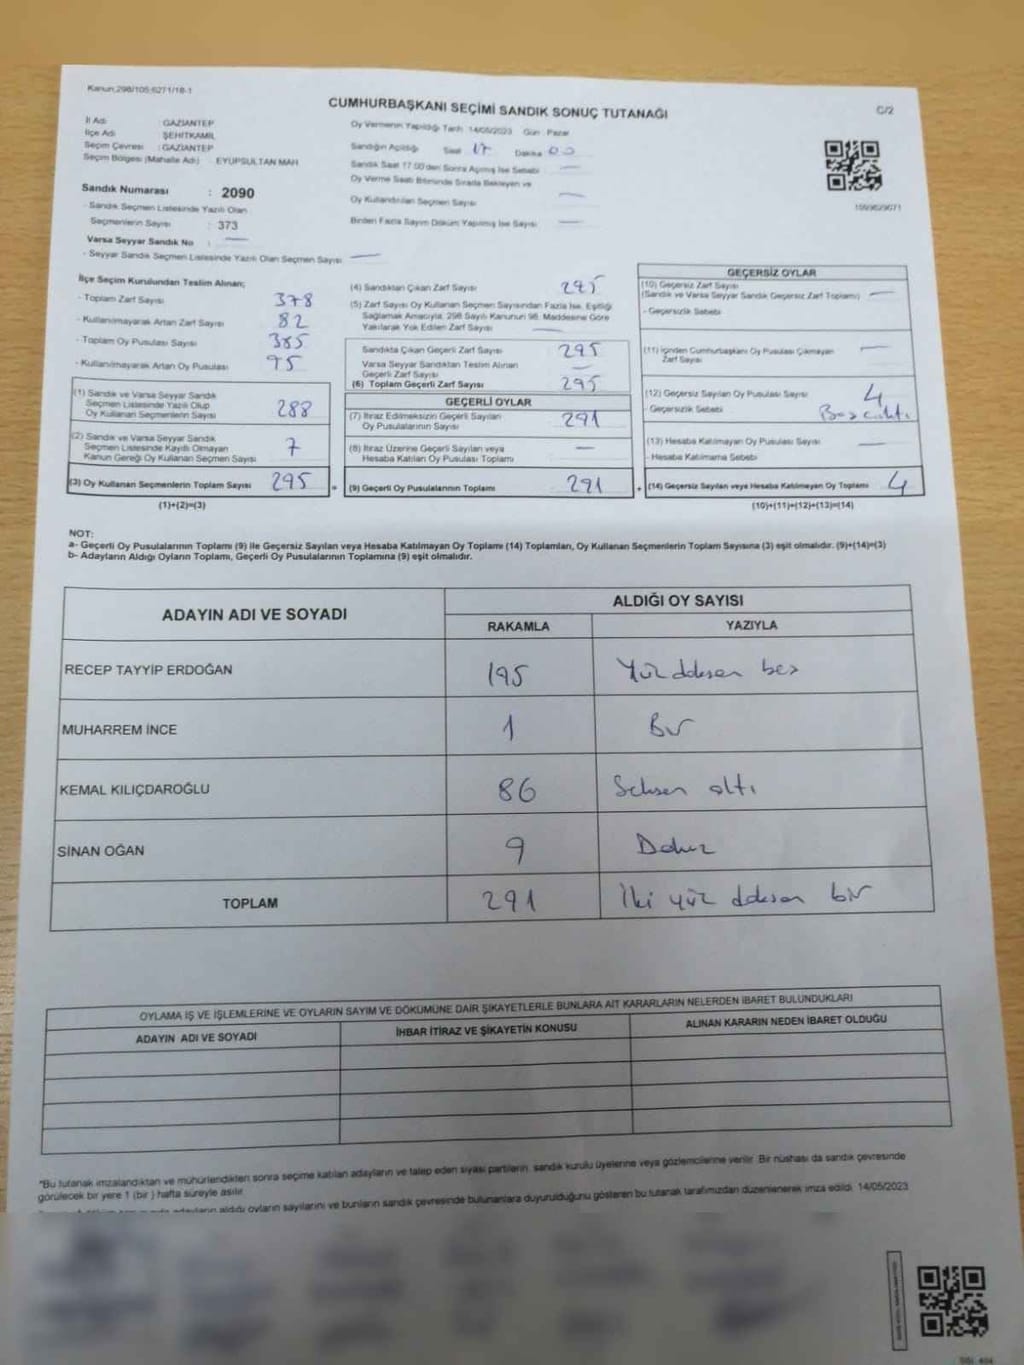 Kanun,298/105;6271/18-1
CUMHURBAŞKANI SEÇİMİ SANDIK SONUÇ TUTANAĞI
C/2
İl Adı GAZİANTEP
İlçe Adı ŞEHİTKAMİL
Seçim Çevresi : GAZİANTEP
Seçim Bölgesi (Mahalle Adı) : EYÜPSULTAN MAH
Sandık Numarası : 2090
- Sandık Seçmen Listesinde Yazılı Olan
Seçmenlerin Sayısı : 373
Varsa Seyyar Sandık No : —
- Seyyar Sandık Seçmen Listesinde Yazılı Olan Seçmen Sayısı —
Oy Vermenin Yapıldığı Tarih : 14/05/2023 Gün : Pazar
Sandığın Açıldığı Saat 17 Dakika 00
Sandık Saat 17:00'den Sonra Açılmış İse Sebebi —
Oy Verme Saati Bitiminde Sırada Bekleyen ve
Oy Kullandırılan Seçmen Sayısı —
Birden Fazla Sayım Döküm Yapılmış İse Sayısı —
İlçe Seçim Kurulundan Teslim Alınan;
- Toplam Zarf Sayısı 378
- Kullanılmayarak Artan Zarf Sayısı 82
- Toplam Oy Pusulası Sayısı 385
- Kullanılmayarak Artan Oy Pusulası 95
(1) Sandık ve Varsa Seyyar Sandık
Seçmen Listesinde Yazılı Olup
Oy Kullanan Seçmenlerin Sayısı 288
(2) Sandık ve Varsa Seyyar Sandık
Seçmen Listesinde Kayıtlı Olmayan
Kanun Gereği Oy Kullanan Seçmen Sayısı 7
(3) Oy Kullanan Seçmenlerin Toplam Sayısı 295
(1)+(2)=(3)
(4) Sandıktan Çıkan Zarf Sayısı 295
(5) Zarf Sayısı Oy Kullanan Seçmen Sayısından Fazla İse, Eşitliği
Sağlamak Amacıyla, 298 Sayılı Kanunun 98. Maddesine Göre
Yakılarak Yok Edilen Zarf Sayısı —
Sandıkta Çıkan Geçerli Zarf Sayısı 295
Varsa Seyyar Sandıktan Teslim Alınan
Geçerli Zarf Sayısı —
(6) Toplam Geçerli Zarf Sayısı 295
GEÇERLİ OYLAR
(7) İtiraz Edilmeksizin Geçerli Sayılan
Oy Pusulalarının Sayısı 291
(8) İtiraz Üzerine Geçerli Sayılan veya
Hesaba Katılan Oy Pusulası Toplamı —
= (9) Geçerli Oy Pusulalarının Toplamı 291
GEÇERSİZ OYLAR
(10) Geçersiz Zarf Sayısı
(Sandık ve Varsa Seyyar Sandık Geçersiz Zarf Toplamı) —
- Geçersizlik Sebebi
(11) İçinden Cumhurbaşkanı Oy Pusulası Çıkmayan
Zarf Sayısı —
(12) Geçersiz Sayılan Oy Pusulası Sayısı 4
- Geçersizlik Sebebi Boş çıktı
(13) Hesaba Katılmayan Oy Pusulası Sayısı —
- Hesaba Katılmama Sebebi
+ (14) Geçersiz Sayılan veya Hesaba Katılmayan Oy Toplamı 4
(10)+(11)+(12)+(13)=(14)
NOT:
a- Geçerli Oy Pusulalarının Toplamı (9) ile Geçersiz Sayılan veya Hesaba Katılmayan Oy Toplamı (14) Toplamları, Oy Kullanan Seçmenlerin Toplam Sayısına (3) eşit olmalıdır. (9)+(14)=(3)
b- Adayların Aldığı Oyların Toplamı, Geçerli Oy Pusulalarının Toplamına (9) eşit olmalıdır.
ADAYIN ADI VE SOYADI
ALDIĞI OY SAYISI
RAKAMLA YAZIYLA
RECEP TAYYİP ERDOĞAN 195 Yüz doksan beş
MUHARREM İNCE 1 Bir
KEMAL KILIÇDAROĞLU 86 Seksen altı
SİNAN OĞAN 9 Dokuz
TOPLAM 291 İki yüz doksan bir
OYLAMA İŞ VE İŞLEMLERİNE VE OYLARIN SAYIM VE DÖKÜMÜNE DAİR ŞİKAYETLERLE BUNLARA AİT KARARLARIN NELERDEN İBARET BULUNDUKLARI
ADAYIN ADI VE SOYADI İHBAR İTİRAZ VE ŞİKAYETİN KONUSU ALINAN KARARIN NEDEN İBARET OLDUĞU
"Bu tutanak imzalandıktan ve mühürlendikten sonra seçime katılan adayların ve talep eden siyasi partilerin, sandık kurulu üyelerine veya gözlemcilerine verilir. Bir nüshası da sandık çevresinde
görülecek bir yere 1 (bir ) hafta süreyle asılır.
adayların aldığı oyların sayılarını ve bunların sandık çevresinde bulunanlara duyurulduğunu gösteren bu tutanak tarafımızdan düzenlenerek imza edildi. 14/05/2023